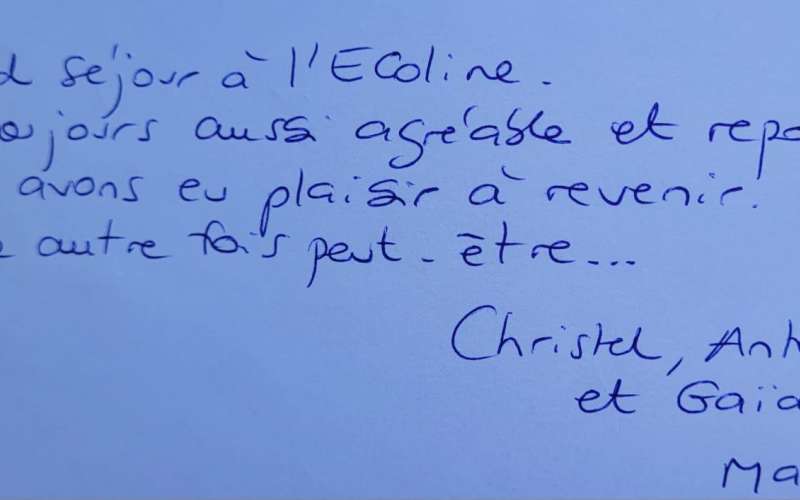 d séjour à l'Ecoline.
oujours aussi agréable et repo
avons eu plaisir à revenir.
e autre fois peut-être...
Christel, Anh
et Gaïa
Ma